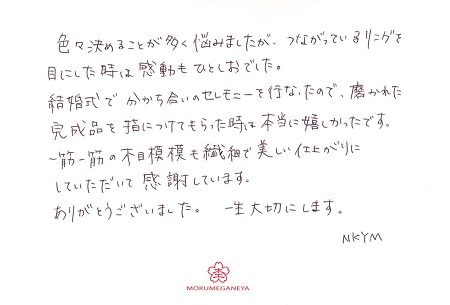 色々決めることが多く悩みましたが、つながっているリングを
目にした時は感動もひとしおでした。
結婚式で分かち合いのセレモニーを行なったので、磨かれた
完成品を指につけてもらった時は本当に嬉しかったです。
一筋一筋の木目模様も繊細で美しい仕上がりに
していただいて感謝しています。
ありがとうございました。一生大切にします。
NKYM
MOKUMEGANEYA